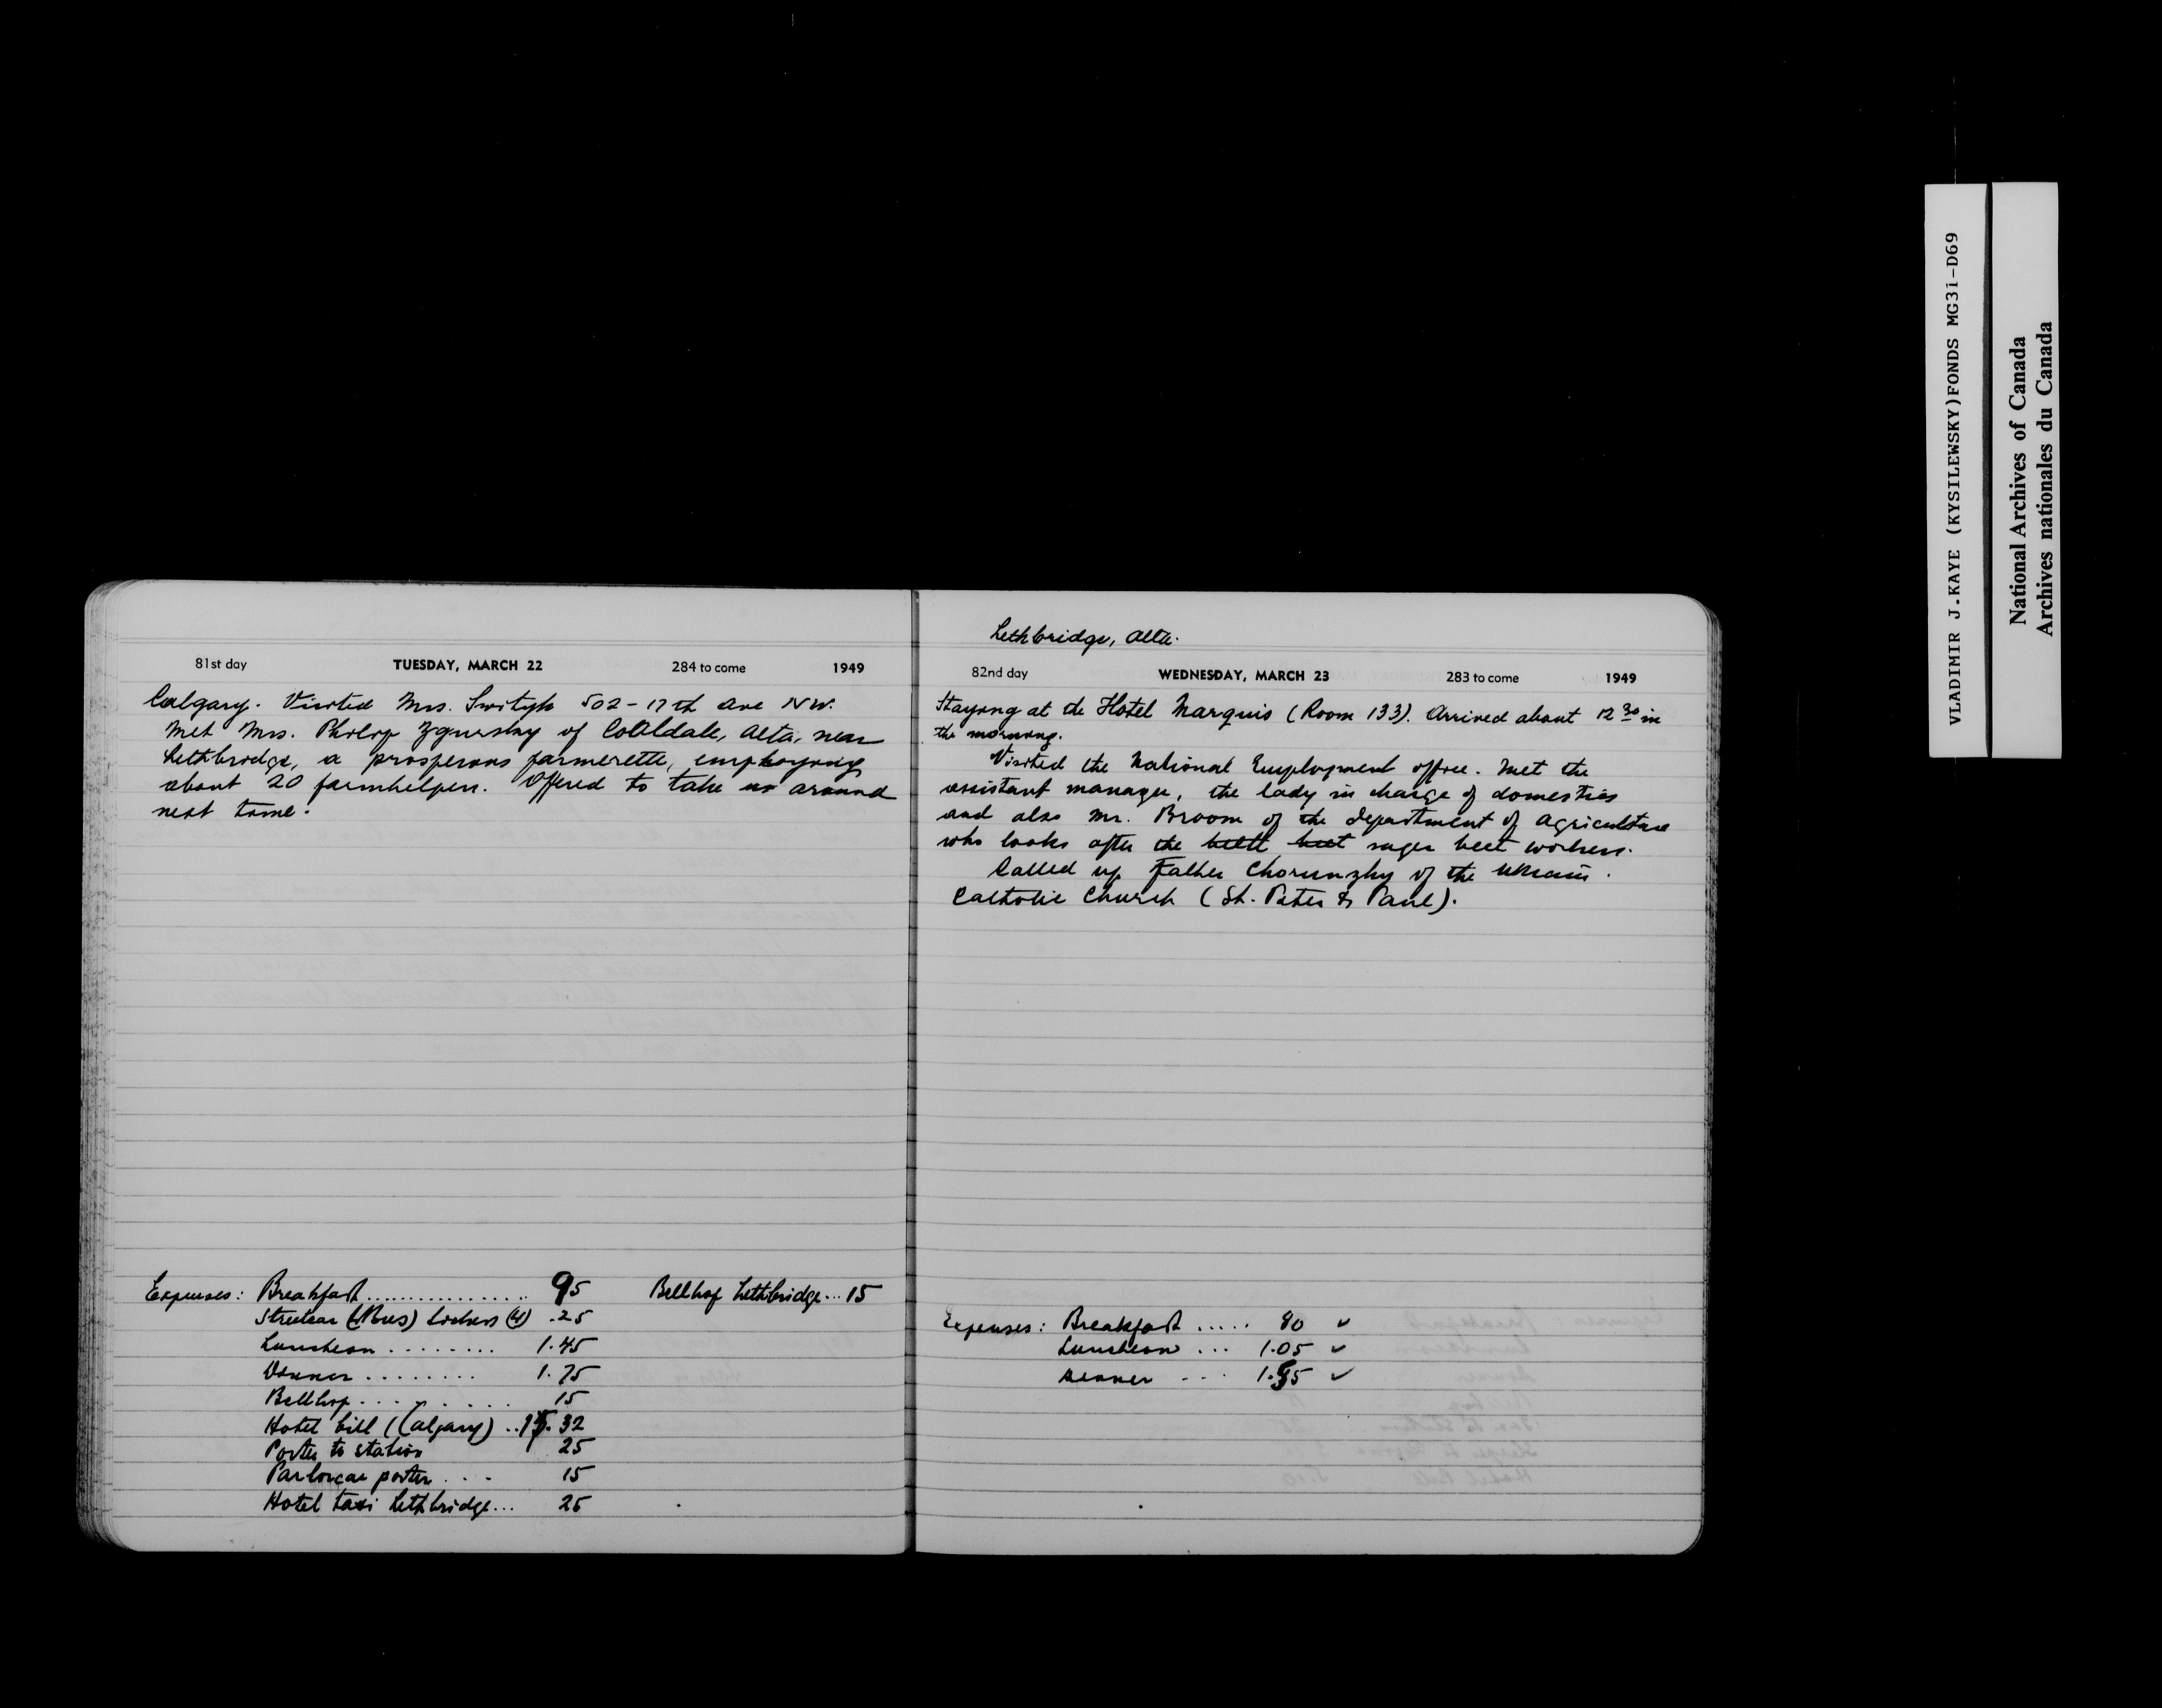 81st day TUESDAY, MARCH 22 284 to come 1949
Calgary. Visited Mrs. Swityk 502-17th Ave NW.
Met Mrs. Philip Zgursky of Coaldale, Alta, near
Lethbridge, a prosperous farmerette, employing
about 20 farmhelpers. Offered to take us around
next time.
Expenses: Breakfast .............. 95
Streetcar (Bus) (4) .25
Luncheon ........ 1.45
Dinner ........ 1.75
Bellhop .......... 15
Hotel bill (Calgary) .. 32
Porter to station 25
Parlorcar porter ... 15
Hotel taxi Lethbridge... 25
Bellhop Lethbridge... 15
Lethbridge, Alta.
82nd day WEDNESDAY, MARCH 23 283 to come 1949
Staying at the Hotel Marquis (Room 133). Arrived about 12 30 in
the morning.
Visited the National Employment office. Met the
assistant manager, the lady in charge of domestics
and also Mr. Broom of the department of agriculture
who looks after the beet sugar beet workers.
Called up Father Chorunzhy of the Ukrain.
Catholic Church (St. Peter & Paul).
Expenses: Breakfast ..... 80 ✓
Luncheon ... 1.05 ✓
Dinner ... ✓
VLADIMIR J.KAYE (KYSILEWSKY)FONDS MG31-D69
National Archives of Canada
Archives nationales du Canada